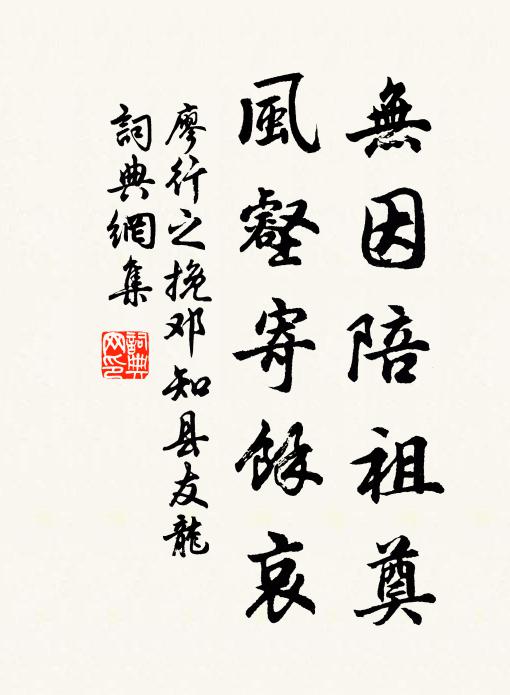 無因陪祖奠
風壑寄餘哀
廖行之挽邓知县友龍
詞典網集
詞典網印